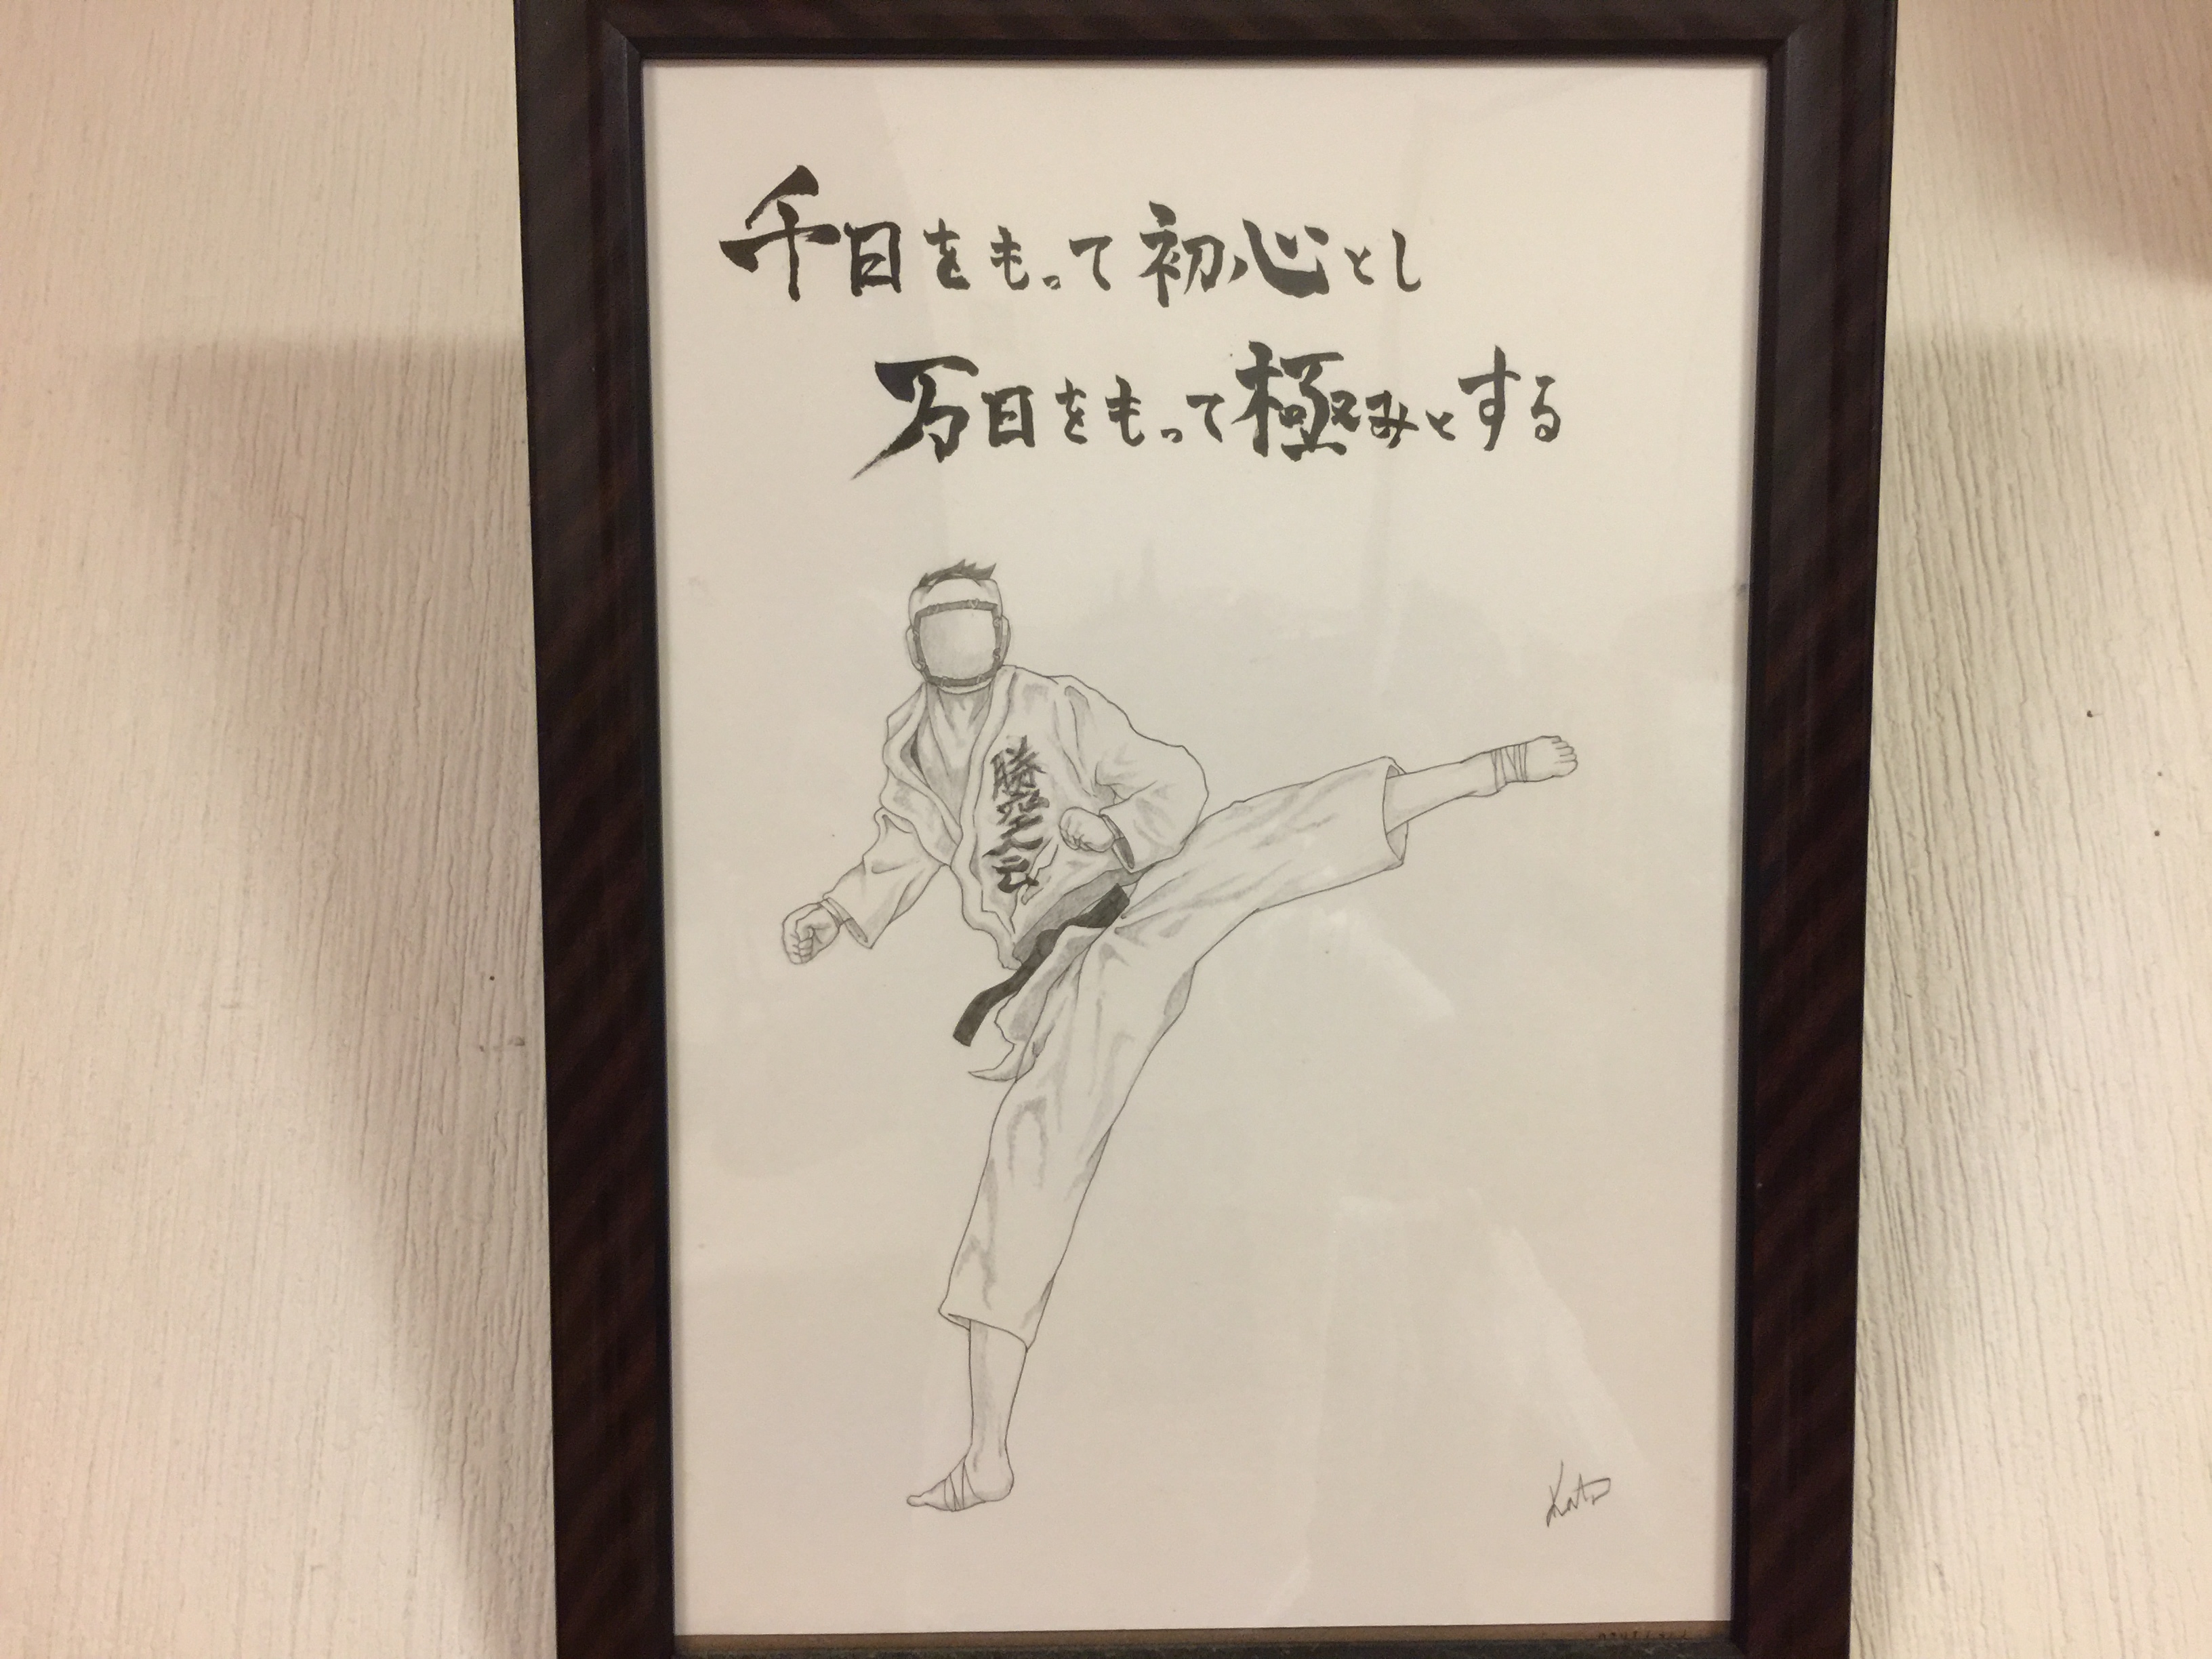 千日をもって初心とし
万日をもって極みとする
勝空会
Kato